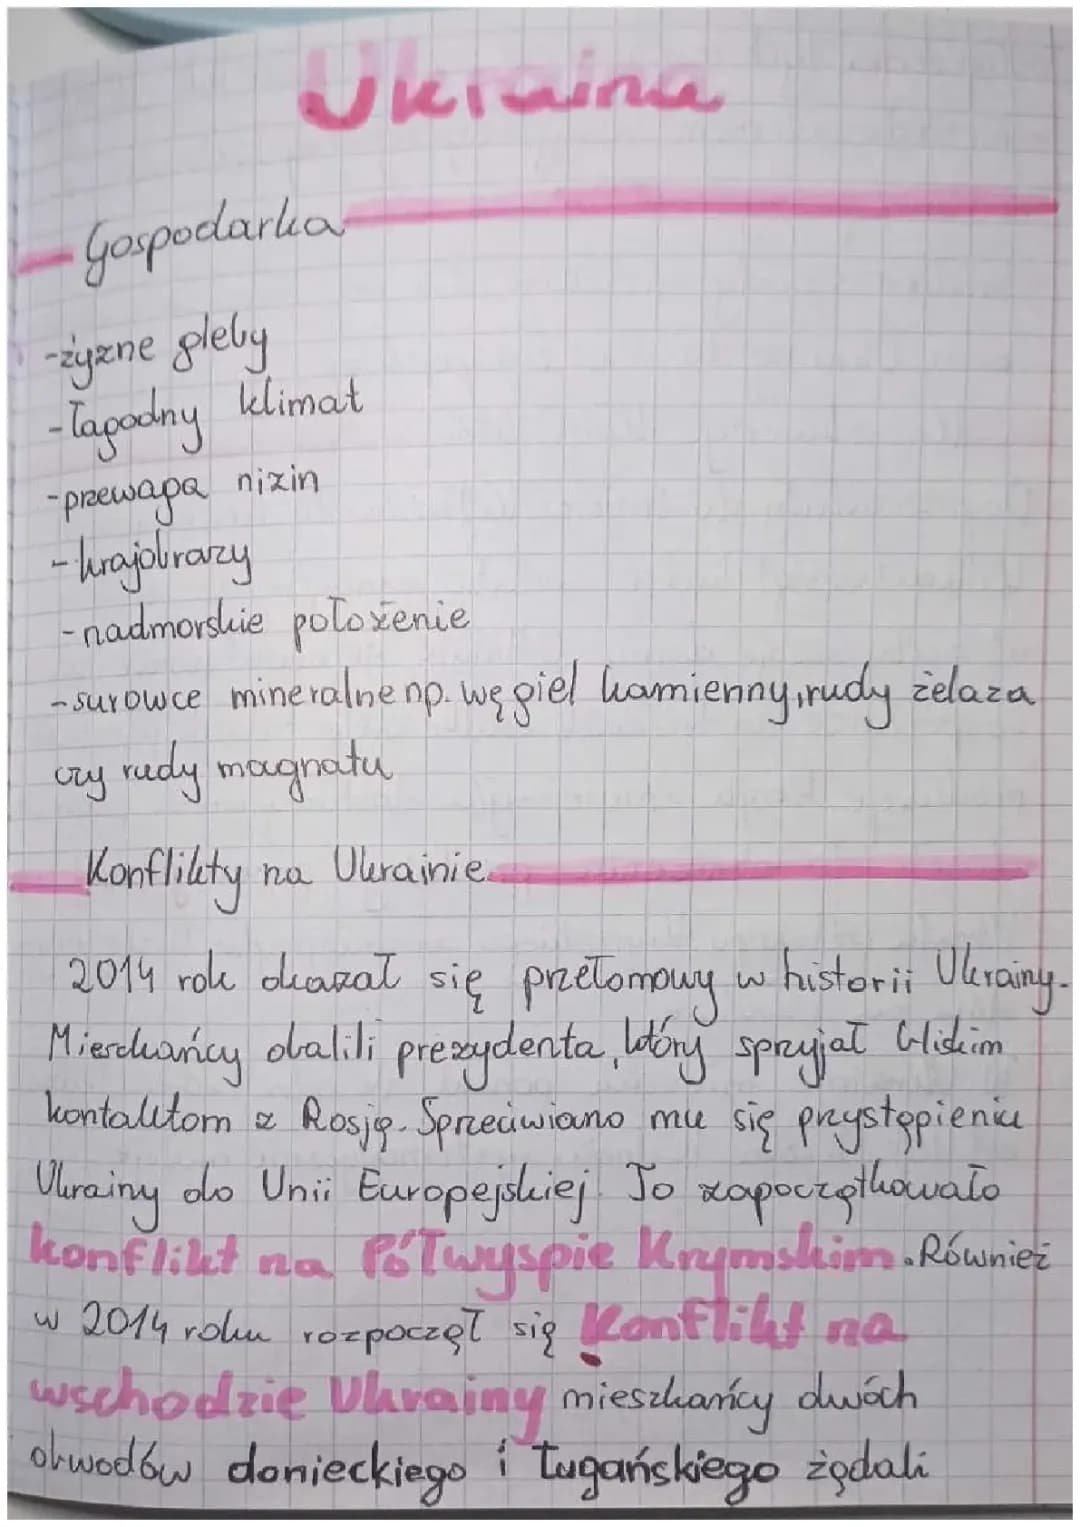 Ukraina
Gospodarka
-żyzne gleby
-łagodny klimat
-przewaga nizin
-krajobrazy
-nadmorskie położenie
-surowce mineralne np. węgiel kamienny, rudy żelaza
czy rudy magnatu
Konflikty na Ukrainie
2014 rok okazał się przełomowy w historii Ukrainy.
Mieszkańcy obalili prezydenta, który sprzyjał bliskim
kontaktom z Rosją. Sprzeciwiano mu się przystąpieniu
Ukrainy do Unii Europejskiej. To zapoczątkowało
konflikt na Półwyspie Krymskim. Również
w 2014 roku rozpoczął się Konflikt na
wschodzie Ukrainy mieszkańcy dwóch
obwodów donieckiego i ługańskiego żądali